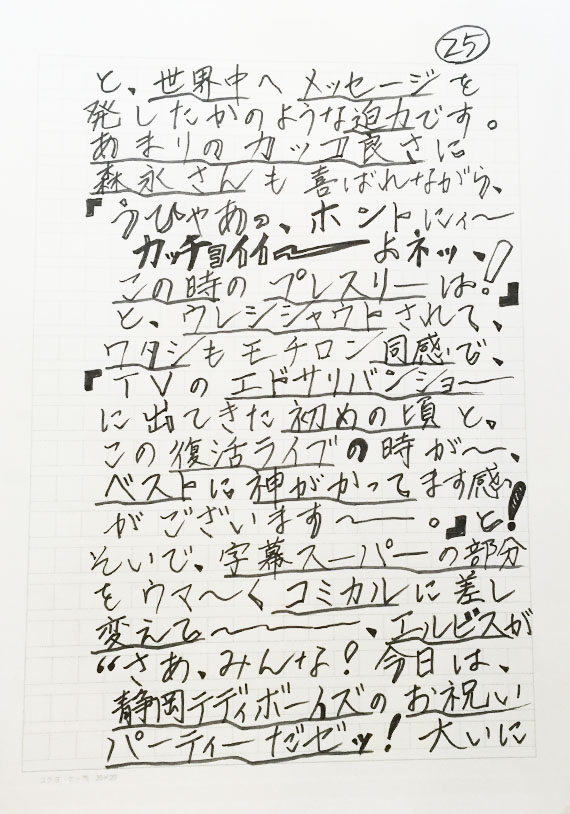 25
と、世界中へメッセージを
発したかのような迫力です。
あまりのカッコ良さに
森永さんも喜ばれながら、
『うひゃあっ、ホントにィ〜
カッチョイイ〜よネッ、!!
この時のプレスリーは!』
と、ウレシシャウトされて、
ワタシもモチロン同感で、
『TVのエドサリバンショ〜
に出てきた初めの頃と、
この復活ライブの時が〜、
ベストに神がかってます感
がございます〜。』と!
そいで、字幕スーパーの部分
をウマ〜くコミカルに差し
変えて〜、エルビスが
“さあ、みんな!今日は、
静岡テディボーイズのお祝い
パーティーだゼッ!大いに